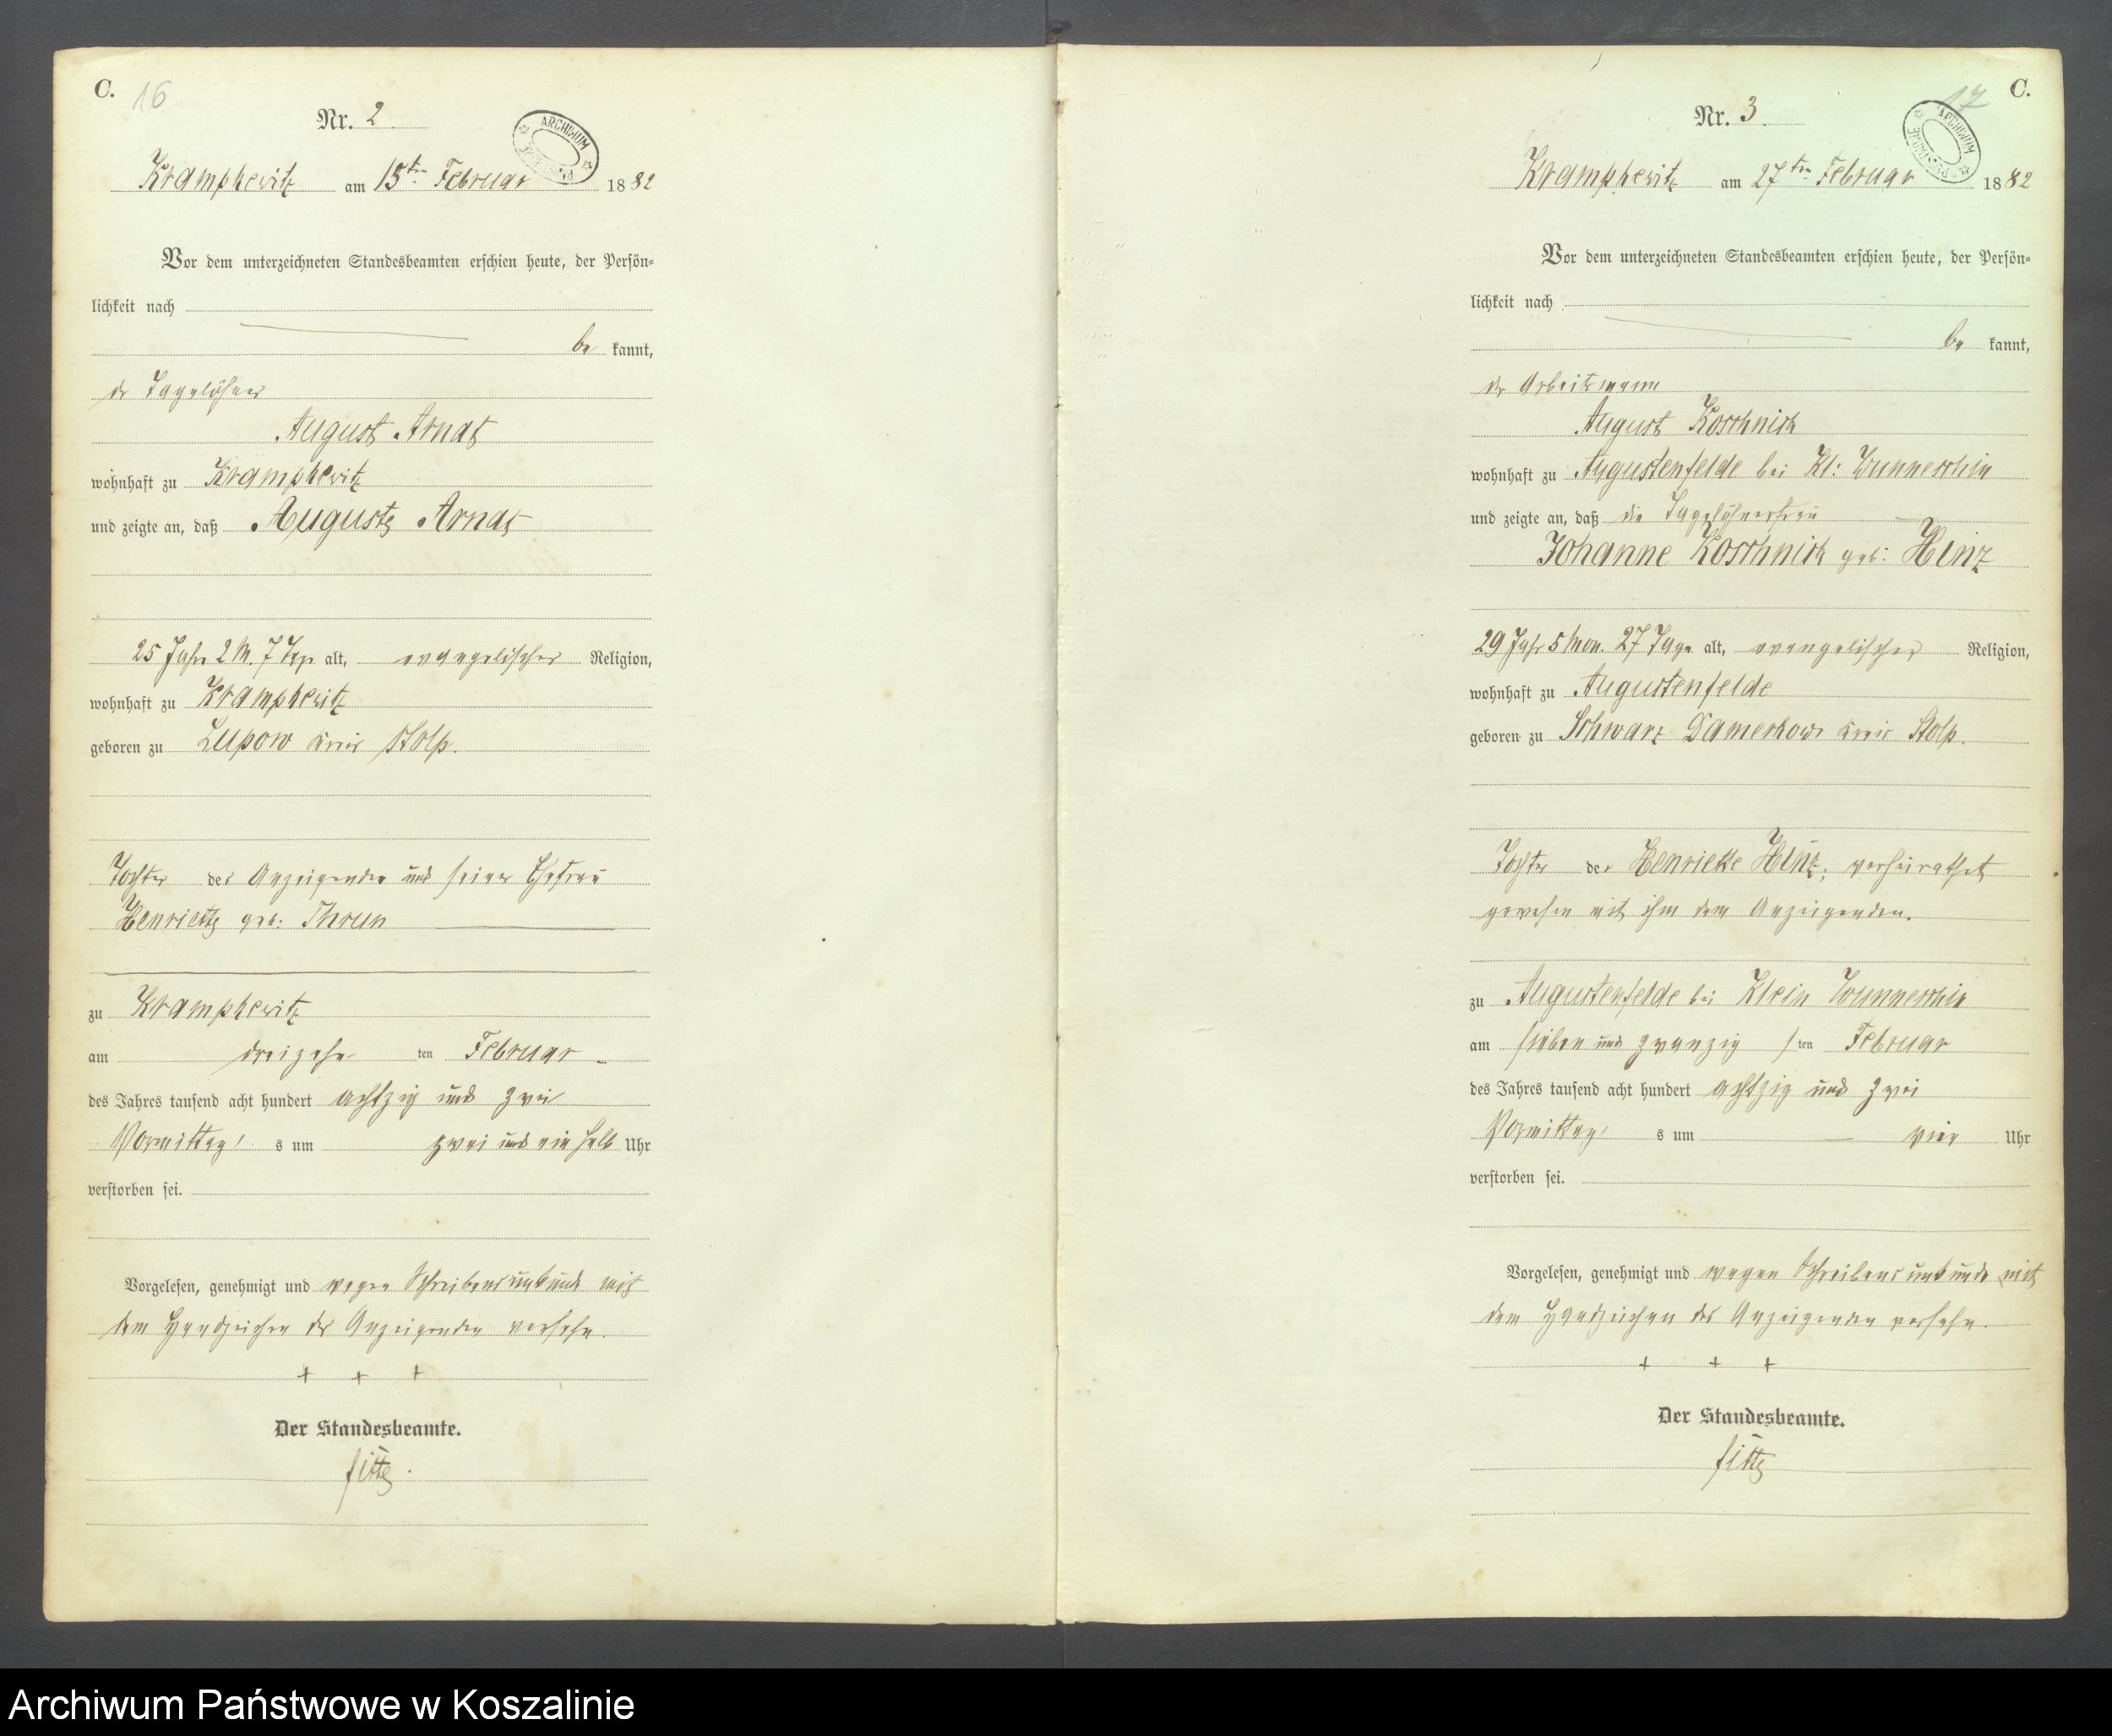 C. 16
Nr. 2
ARCHIWUM
Krampkewitz am 15ten Februar 1882
Vor dem unterzeichneten Standesbeamten erschien heute, der Persön-
lichkeit nach
be kannt,
der Tagelöhner
August Arndt
wohnhaft zu Krampkewitz
und zeigte an, daß Auguste Arndt
25 Jahr 2 M. 7 Tage alt, evangelischer Religion,
wohnhaft zu Krampkewitz
geboren zu Lupow Kreis Stolp.
Tochter des Anzeigenden und seiner Ehefrau
Henriette geb: Thrun
zu Krampkewitz
am dreizehn ten Februar
des Jahres tausend acht hundert achtzig und zwei
Vormittags um zwei und ein halb Uhr
verstorben sei.
Vorgelesen, genehmigt und wegen Schreibensunkunde mit
dem Handzeichen des Anzeigenden versehn.
+ + +
Der Standesbeamte.
C. 17
Nr. 3.
ARCHIWUM
Krampkewitz am 27ten Februar 1882
Vor dem unterzeichneten Standesbeamten erschien heute, der Persön-
lichkeit nach
be kannt,
der Arbeitsmann
August Koschnick
wohnhaft zu Augustenfelde bei Kl: Wunneschin
und zeigte an, daß die Tagelöhnerfrau
Johanne Koschnick geb: Hinz
29 Jahr 5 Mon. 27 Tage alt, evangelischer Religion,
wohnhaft zu Augustenfelde
geboren zu Schwarz Damerkow Kreis Stolp.
Tochter der Henriette Hinz, verheirathet
gewesen mit ihm dem Anzeigenden.
zu Augustenfelde bei Klein Wunneschin
am sieben und zwanzigsten Februar
des Jahres tausend acht hundert achtzig und zwei
Vormittags um vier Uhr
verstorben sei.
Vorgelesen, genehmigt und wegen Schreibensunkunde mit
dem Handzeichen des Anzeigenden versehn.
+ + +
Der Standesbeamte.
Archiwum Państwowe w Koszalinie